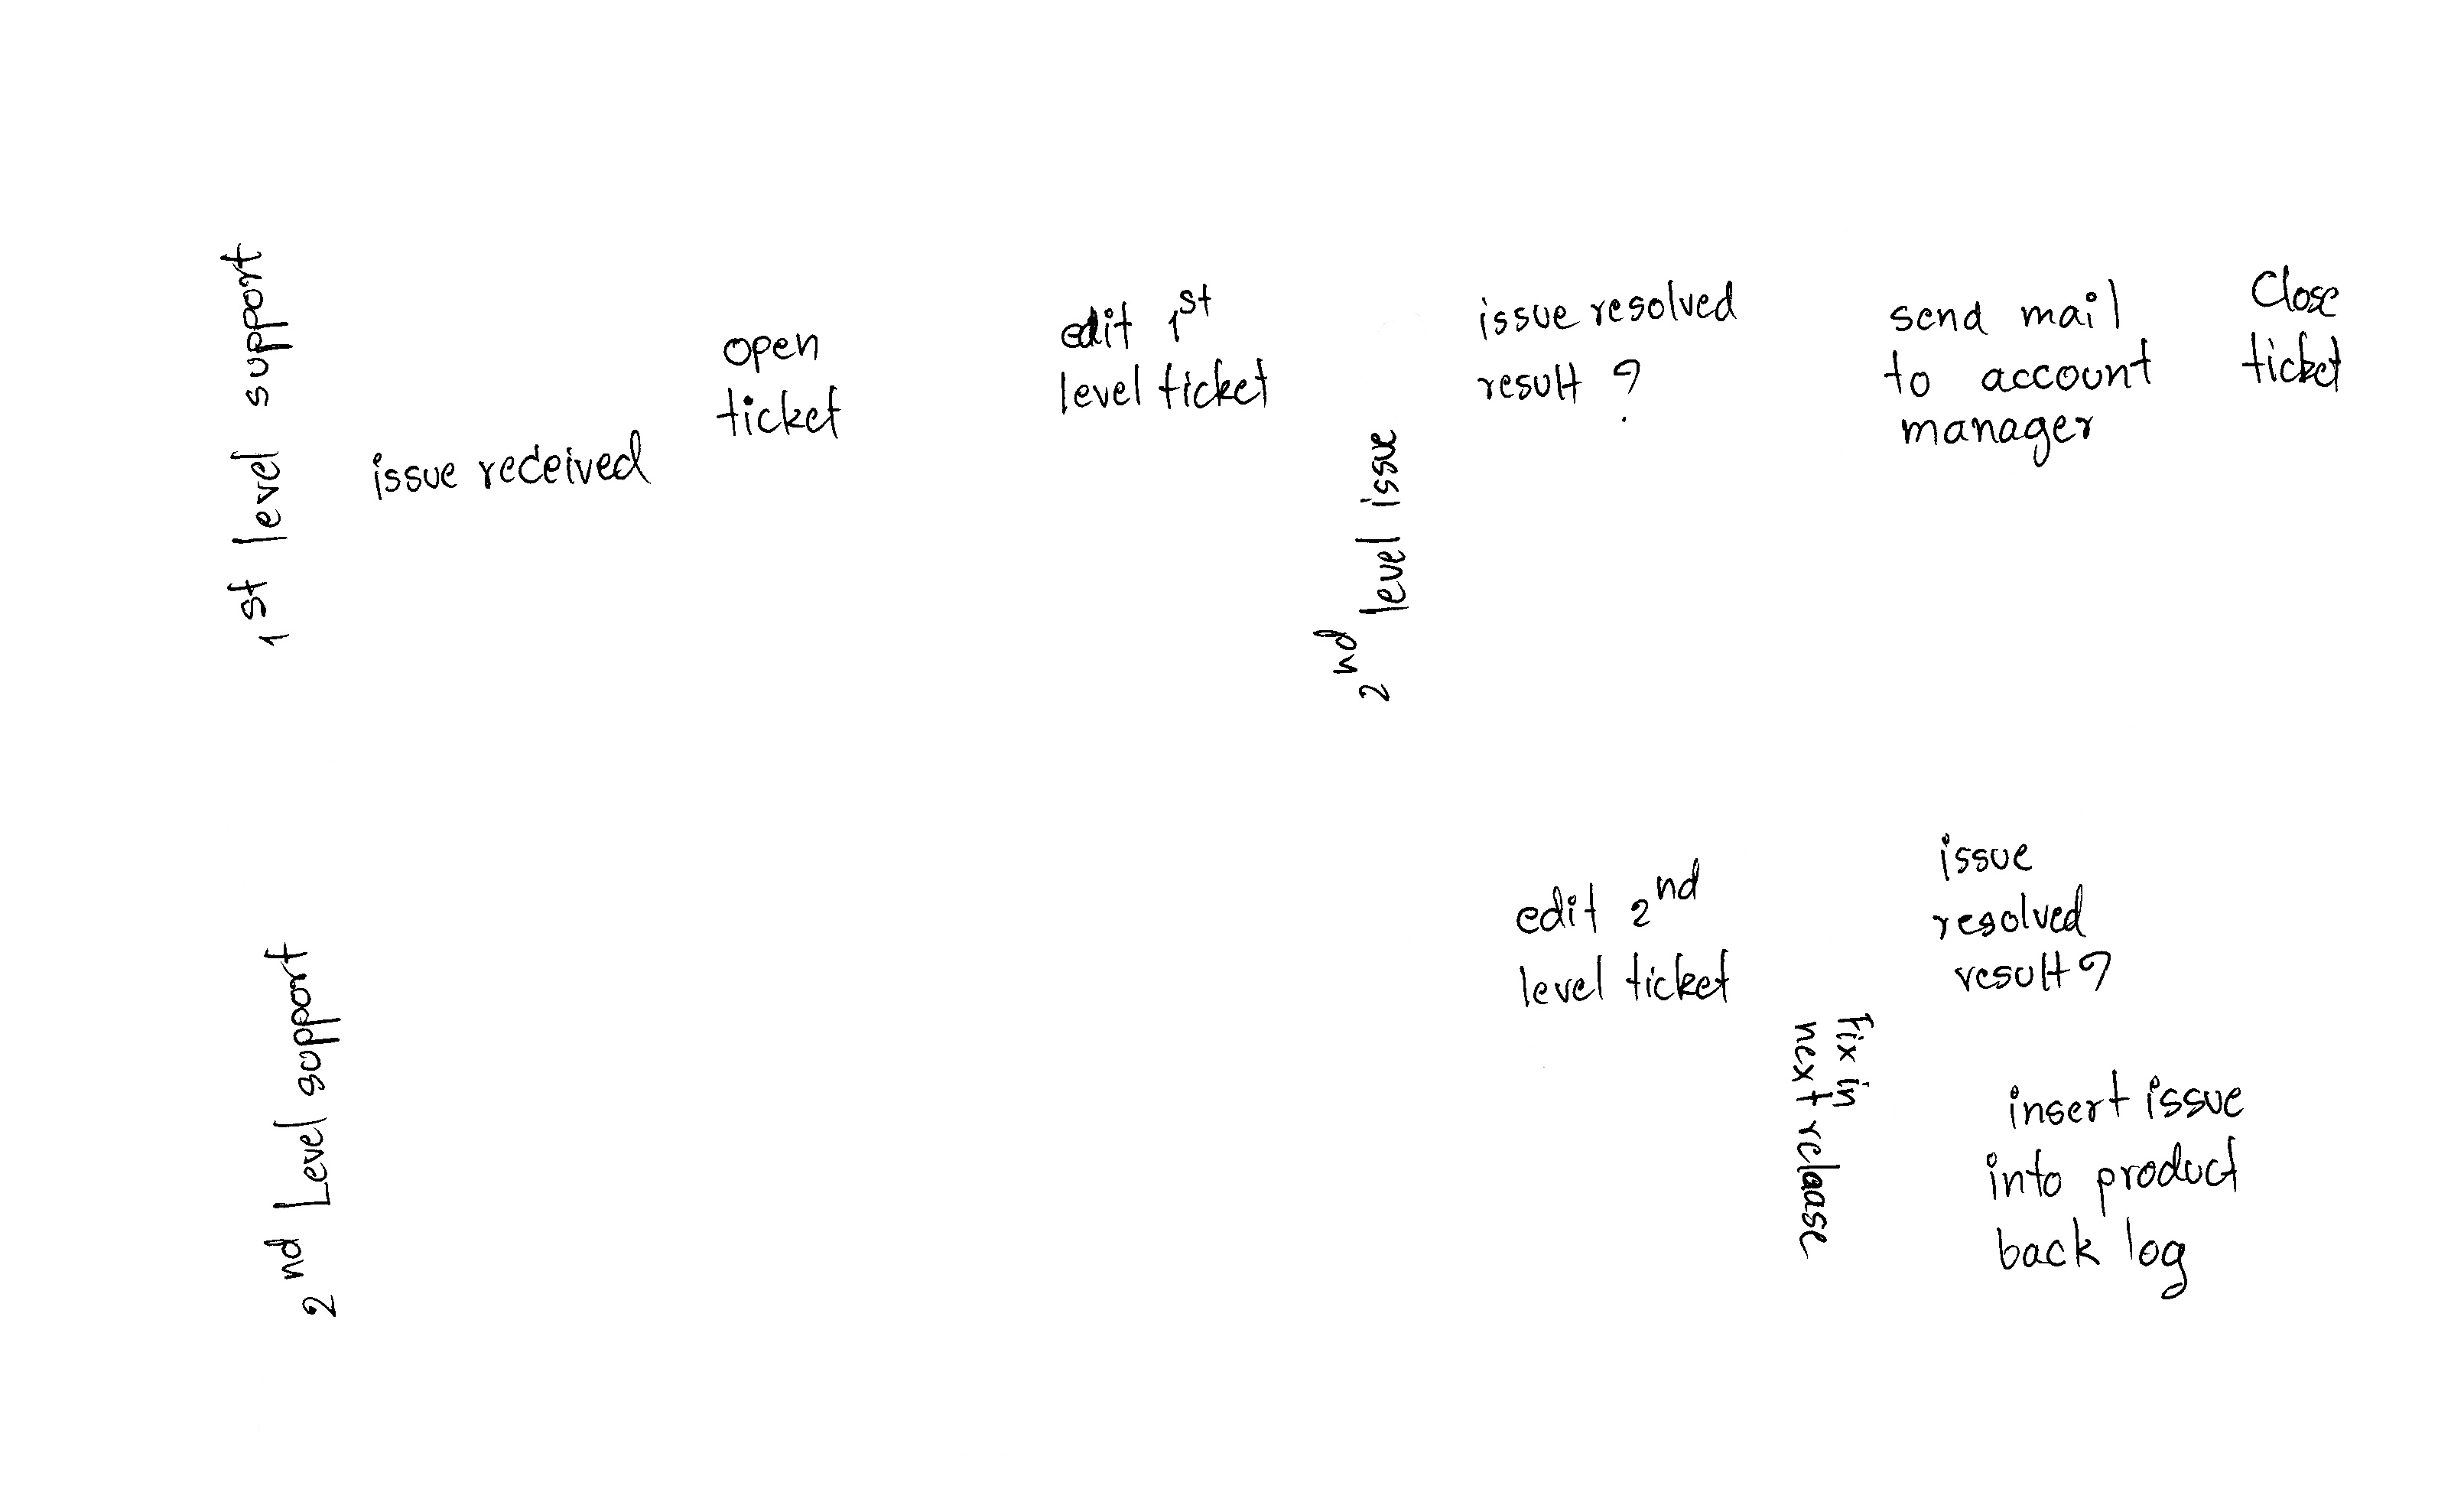 1st level support
issue received
open
ticket
edit 1st
level ticket
2nd level issue
issue resolved
result ?
send mail
to account
manager
Close
ticket
2nd Level support
edit 2nd
level ticket
fix in
next release
issue
resolved
result?
insert issue
into product
back log